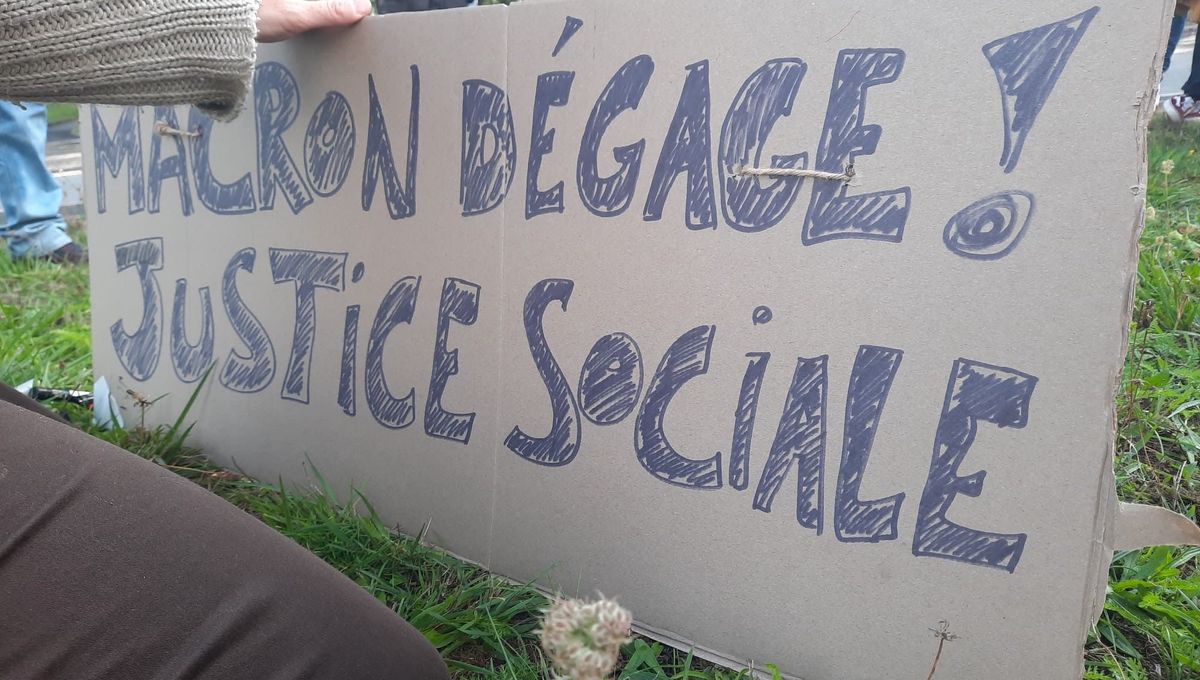 MACRON DÉGAGE !
JUSTiCE SOCiALE